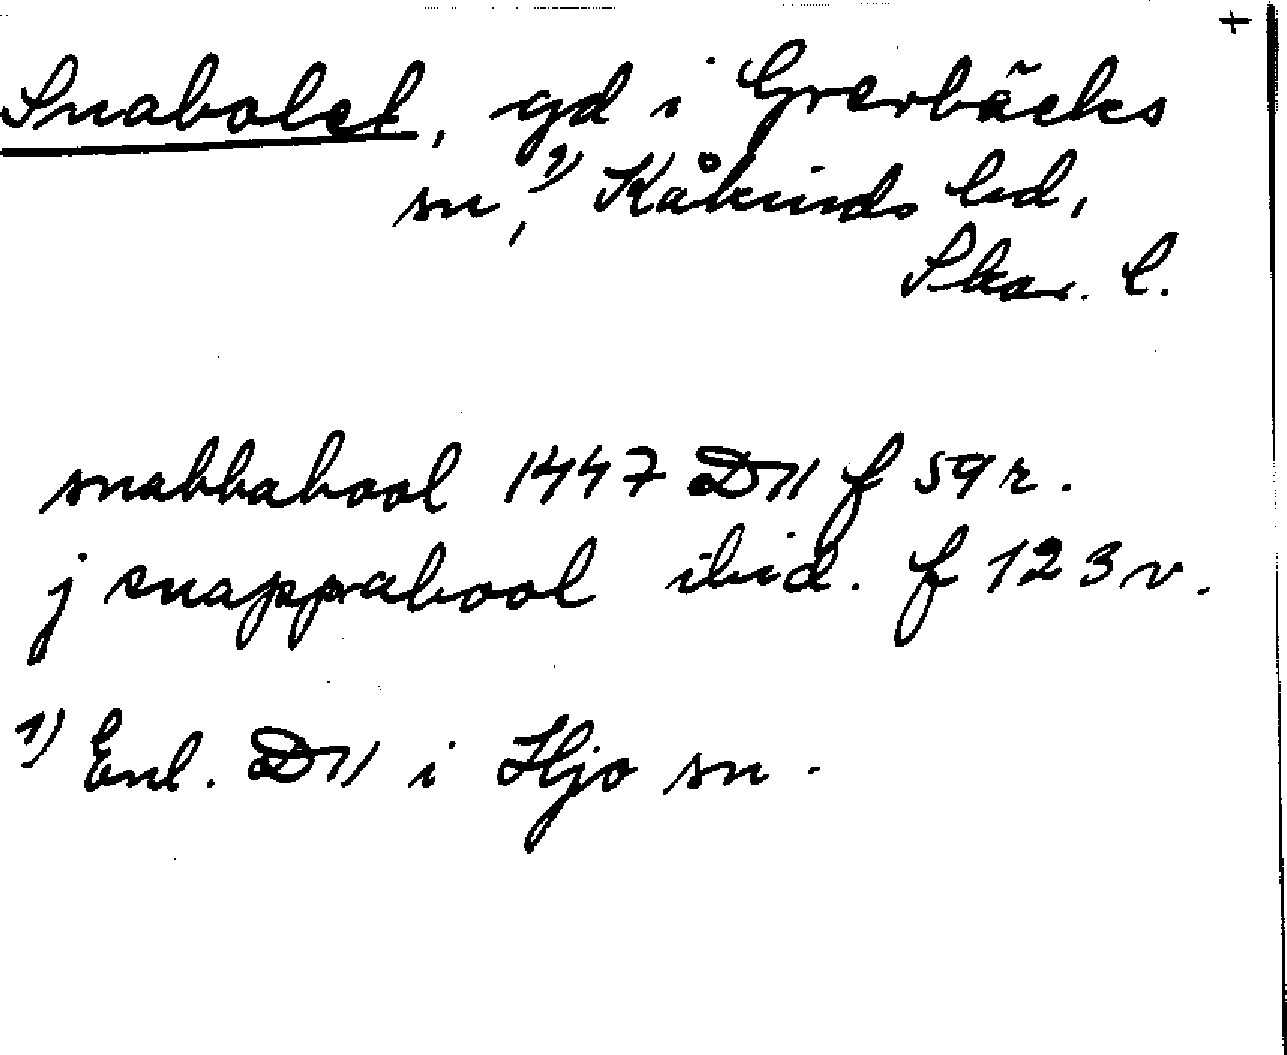 +
Snabolet, gd i Grevbäcks
sn,¹⁾ Kåkinds hd,
Skar. l.
snabbabool 1447 D11 f 59r.
j snappabool ibid. f 123v.
¹⁾ Enl. D11 i Hjo sn.